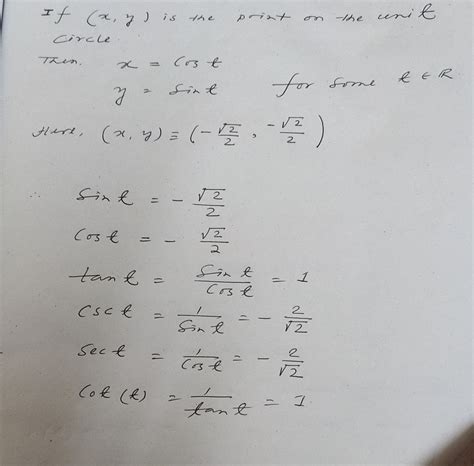 If (x, y) is the point on the unit
circle.
Then, x = Cos t
y = Sin t for some t ∈ ℝ.
Here, (x, y) ≡ (-√2/2, -√2/2)
∴ Sin t = - √2/2
Cos t = - √2/2
tan t = Sin t/Cos t = 1
Csc t = 1/Sin t = - 2/√2
Sec t = 1/Cos t = - 2/√2
Cot (t) = 1/tan t = 1.